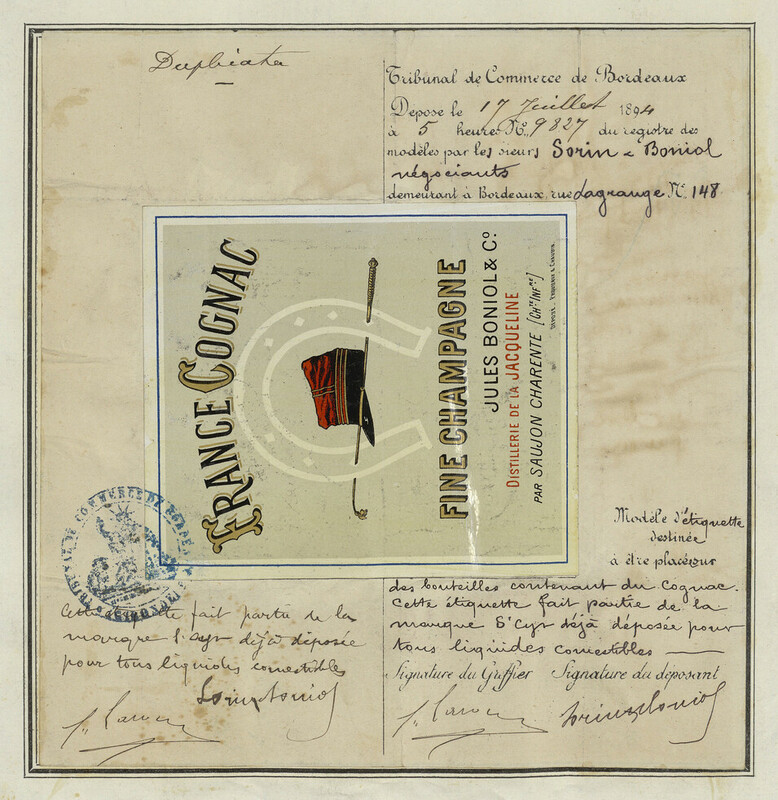 Duplicata
Tribunal de Commerce de Bordeaux
Depose le 17 Juillet 1894
à 5 heures No. 9827 du registre des
modèles par les sieurs Sorin & Boniol
négociants
demeurant à Bordeaux, rue Lagrange No. 148
FRANCE COGNAC
FINE CHAMPAGNE
JULES BONIOL & Co.
DISTILLERIE DE LA JACQUELINE
PAR SAUJON CHARENTE [CHTE INFRE]
TRIBUNAL DE COMMERCE DE BORDEAUX
Modèle d'étiquette
destinée
à être placée sur
des bouteilles contenant du Cognac.
Cette étiquette fait partie de la
marque St Cyr déjà déposée pour
tous liquides comestibles
Signature du Greffier Signature du déposant
Sorin & Boniol
Cette étiquette fait partie de la
marque St Cyr déjà déposée
pour tous liquides comestibles
Sorin & Boniol